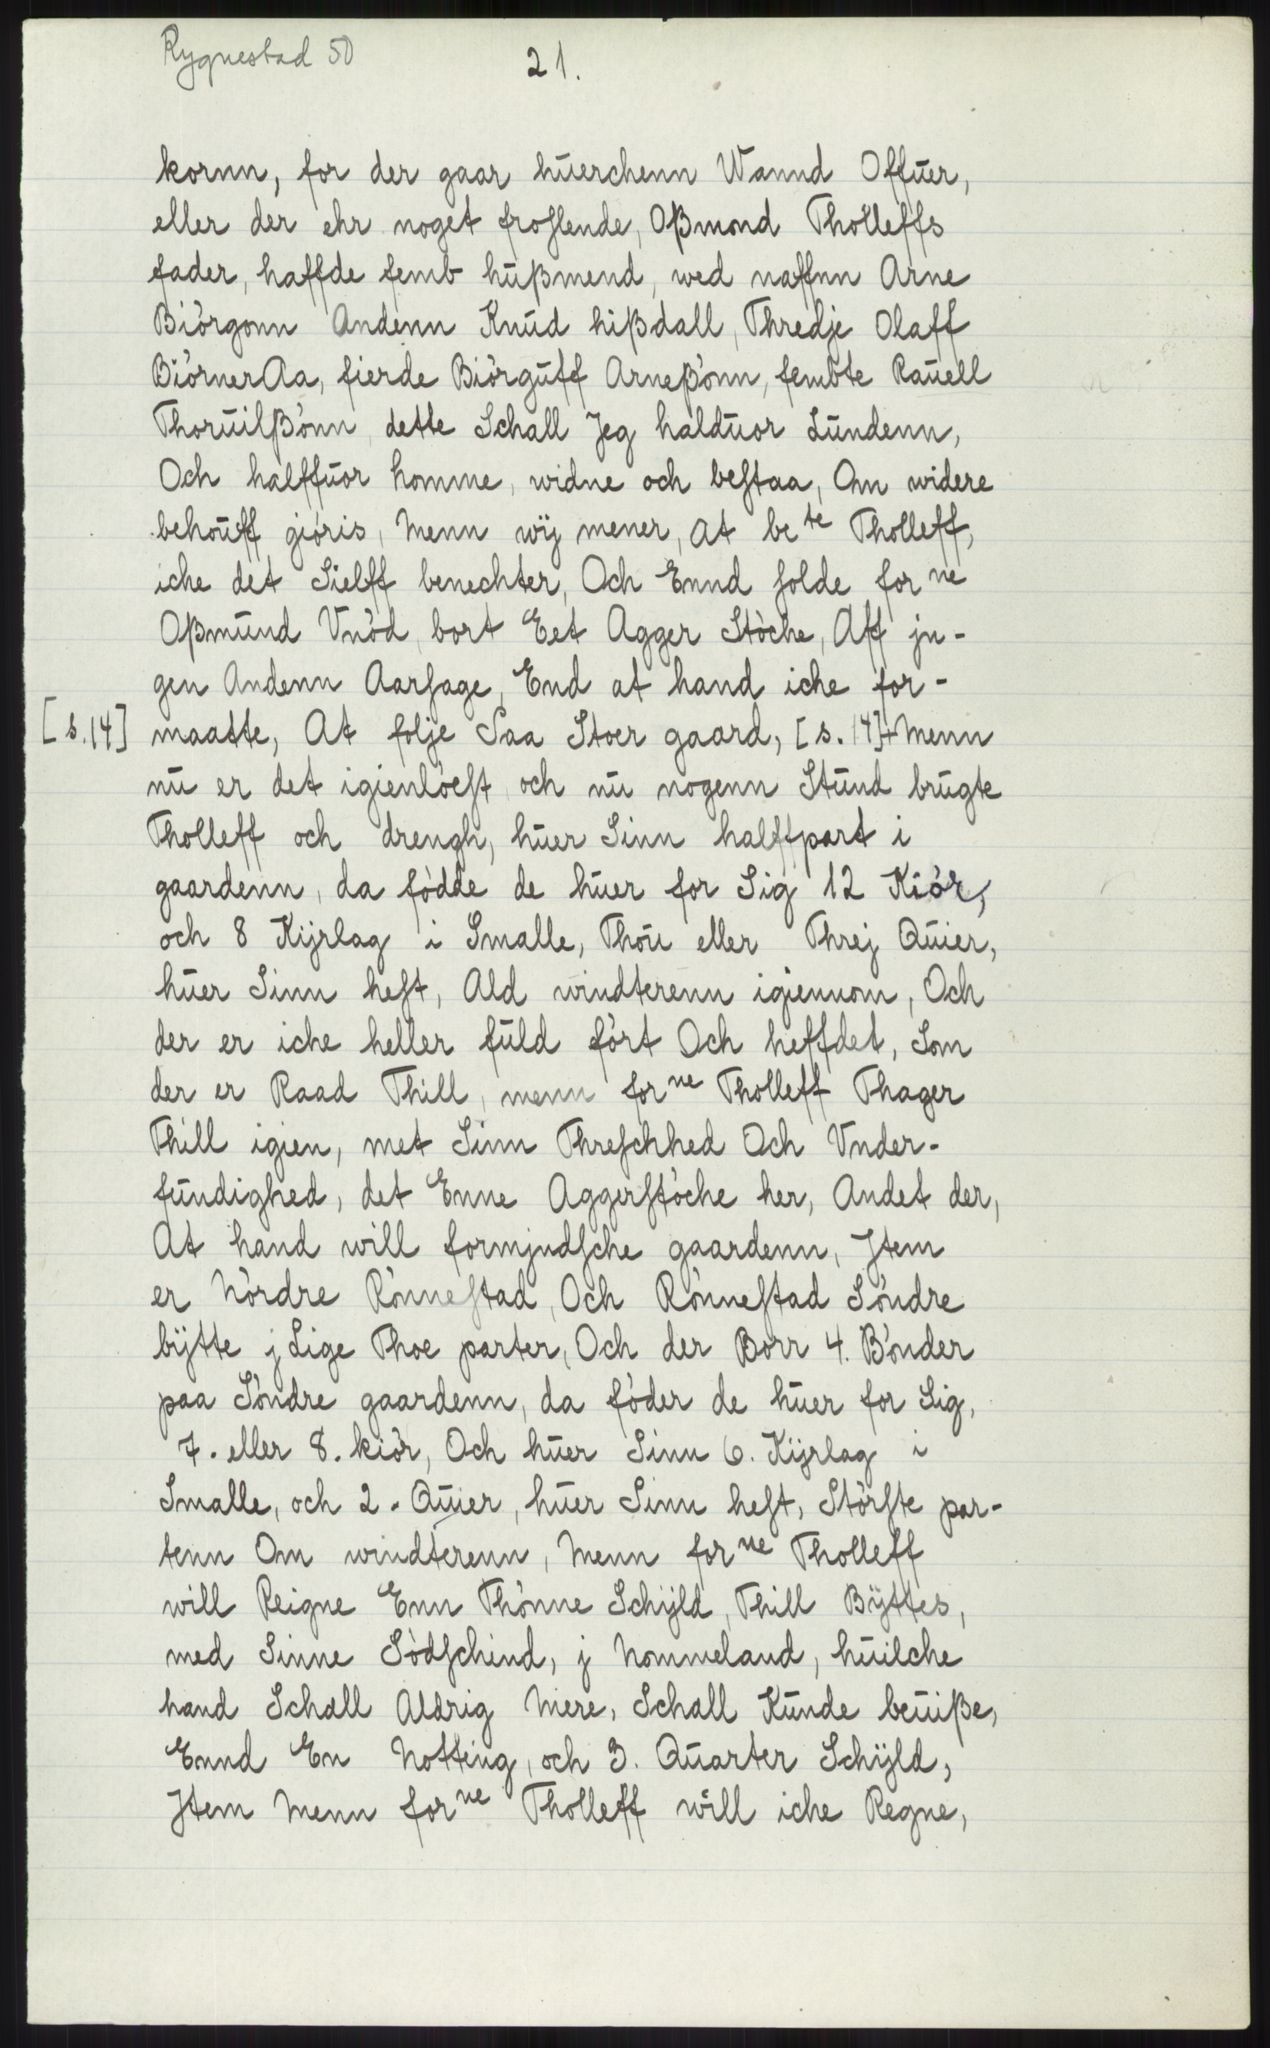 Rygnestad 50
21.
kornn, for der gaar huerchenn Wannd Offuer,
eller der ehr noget froslende, Oßmond Tholleffs
fader, haffde femb hußmend, wed naffnn Arne
Biörgonn Andenn Knud hißdall, Thredje Olaff
BiörnerAa, fierde Biörguff Arneßönn, fembte Rauell
Thoruilßönn, dette Schall Jeg halduor Lundenn,
Och halffuor homme, widne och bestaa, Om widere
behouff giöris, Menn wÿ mener, at be te Tholleff,
iche det Sielff benechter, Och Ennd solde for ne
Oßmund Vnöd, bort Eet Agger Stöche, Aff jn-
gen Andenn Aarsage, End at hand iche for-
[s.14] maatte, At følje Saa Stoer gaard, [s. 14] Menn
nu er det igienlöest och nu nogenn Stund brugte
Tholleff och drengh, huer Sinn halffpart i
gaardenn, da födde de huer for Sig 12 Kiör,
och 8 Kijrlag i Smalle, Thou eller Threj Quier,
huer Sinn hest, Ald windterenn igiennom, Och
der er iche heller fuld fört Och heffdet, Som
der er Raad Thill, menn for ne Tholleff Thager
Thill igien, met Sinn Threschhed Och Vnder-
fundighed, det Enne Aggerstöche her, Andet der,
At hand will formjndsche gaardenn, Jtem
er Nördre Rönnestad, Och Rönnestad Söndre
bÿtte j Lige Thoe parter, Och der Borr 4. Bönder
paa Söndre gaardenn, da föder de huer for Sig,
7. eller 8. kiör, Och huer Sinn 6. Kijrlag i
Smalle, och 2. Quier, huer Sinn hest, Störste par-
tenn Om windterenn, Menn for ne Tholleff
will Reigne Enn Thönne Schÿld, Thill Bÿttes,
med Sinne Södschind, j Nommeland, huilche
hand Schall Aldrig Mere, Schall Kunde beuiße,
Ennd En Notting, och 3. Quarter Schÿld,
Jtem Menn for ne Tholleff will iche Regne,